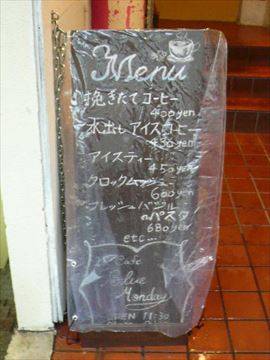 Menu
挽きたてコーヒー
400yen
水出しアイスコーヒー
430yen
アイスティー
450yen
クロックムッシュー
600yen
フレッシュバジル
のパスタ
680yen
etc...
Cafe
Blue
Monday
OPEN 11:30